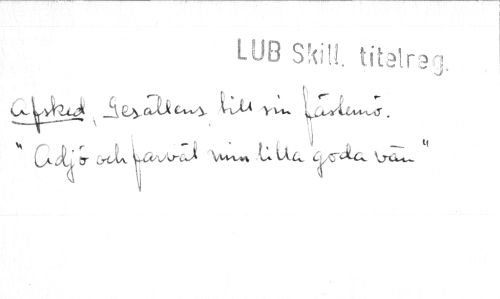 LUB Skill. titelreg.
Afsked, Gesällens, till sin fästemö.
"Adjö och farväl min lilla goda vän"